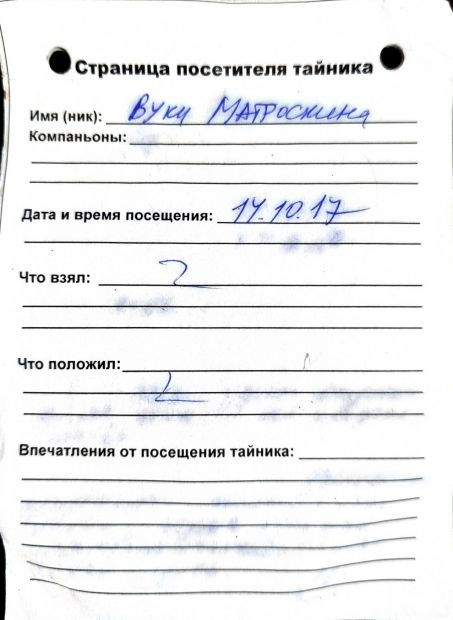 Страница посетителя тайника
Имя (ник): Вуки Матроскина
Компаньоны:
Дата и время посещения: 14.10.17
Что взял:
Что положил:
Впечатления от посещения тайника: